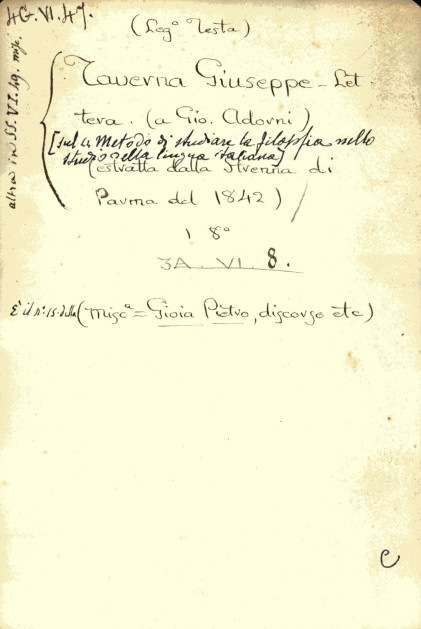 4G.VI.47.
(Leg.º Testa)
altra in SS.VI.49. misc.
Taverna Giuseppe - Let-
tera. (a Gio. Adorni)
[sul Metodo di studiare la filosofia nello
studio della lingua italiana]
(estratta dalla Strenna di
Parma del 1842)
1 8º
3A. VI. 8.
È il nº. 15. della (Miscª = Gioia Pietro, discorso etc)
C